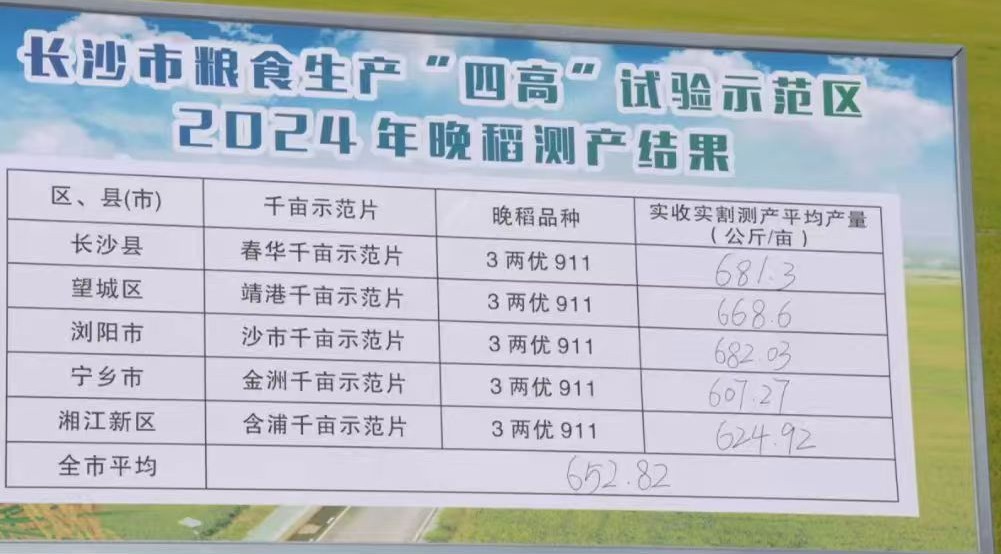 长沙市粮食生产“四高”试验示范区
2024年晚稻测产结果
区、县(市) 千亩示范片 晚稻品种 实收实割测产平均产量
(公斤/亩)
长沙县 春华千亩示范片 3两优911 681.3
望城区 靖港千亩示范片 3两优911 668.6
浏阳市 沙市千亩示范片 3两优911 682.03
宁乡市 金洲千亩示范片 3两优911 607.27
湘江新区 含浦千亩示范片 3两优911 624.92
全市平均 652.82